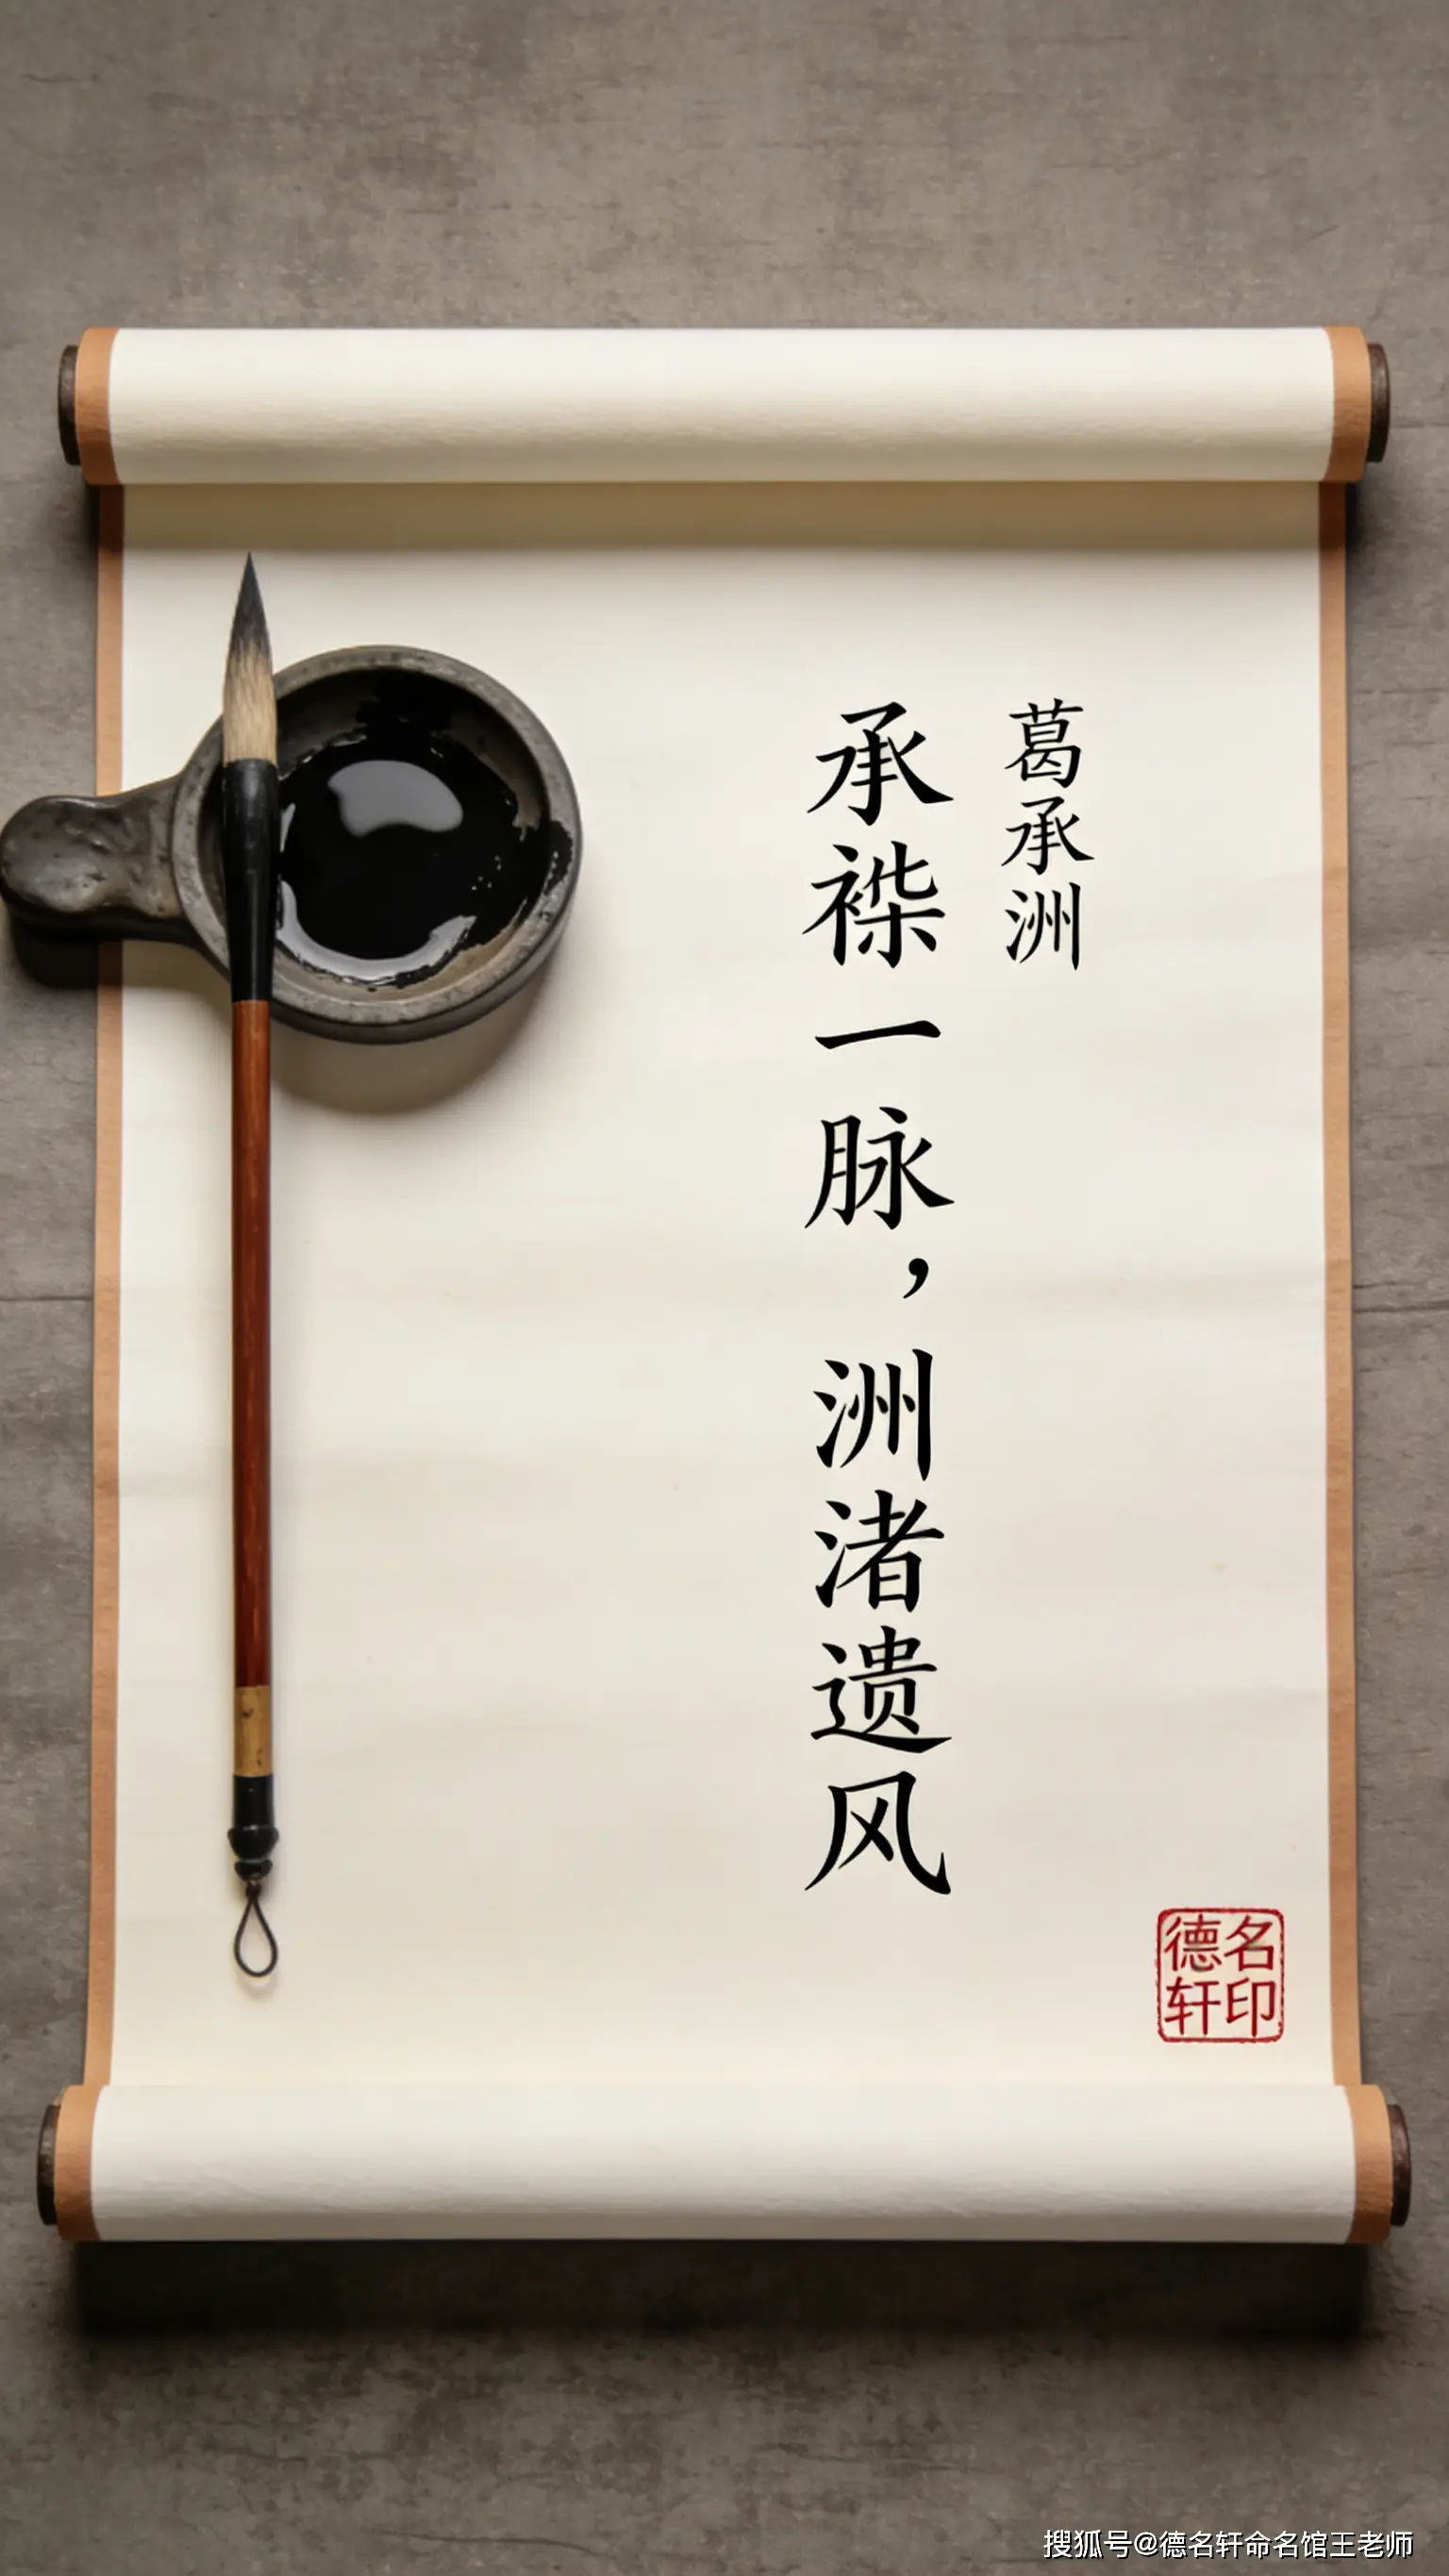 葛承洲
承褋一脉，洲渚遗风
德名
轩印
搜狐号@德名轩命名馆王老师